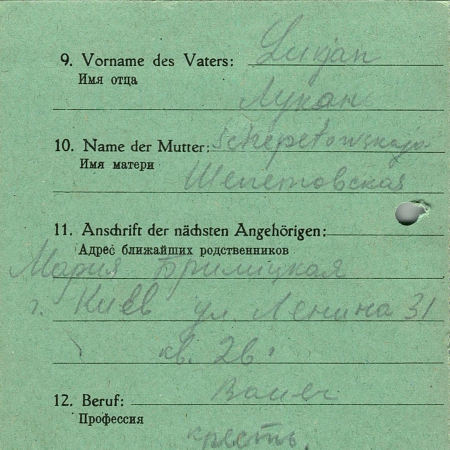 9. Vorname des Vaters: Lukjan
Имя отца
Лукан
10. Name der Mutter: Schepetowskaja
Имя матери
Шепетовская
11. Anschrift der nächsten Angehörigen:
Адрес ближайших родственников
Мария
г. Киев ул. Ленина 31
кв. 26.
12. Beruf: Bauer
Профессия
крестьь.